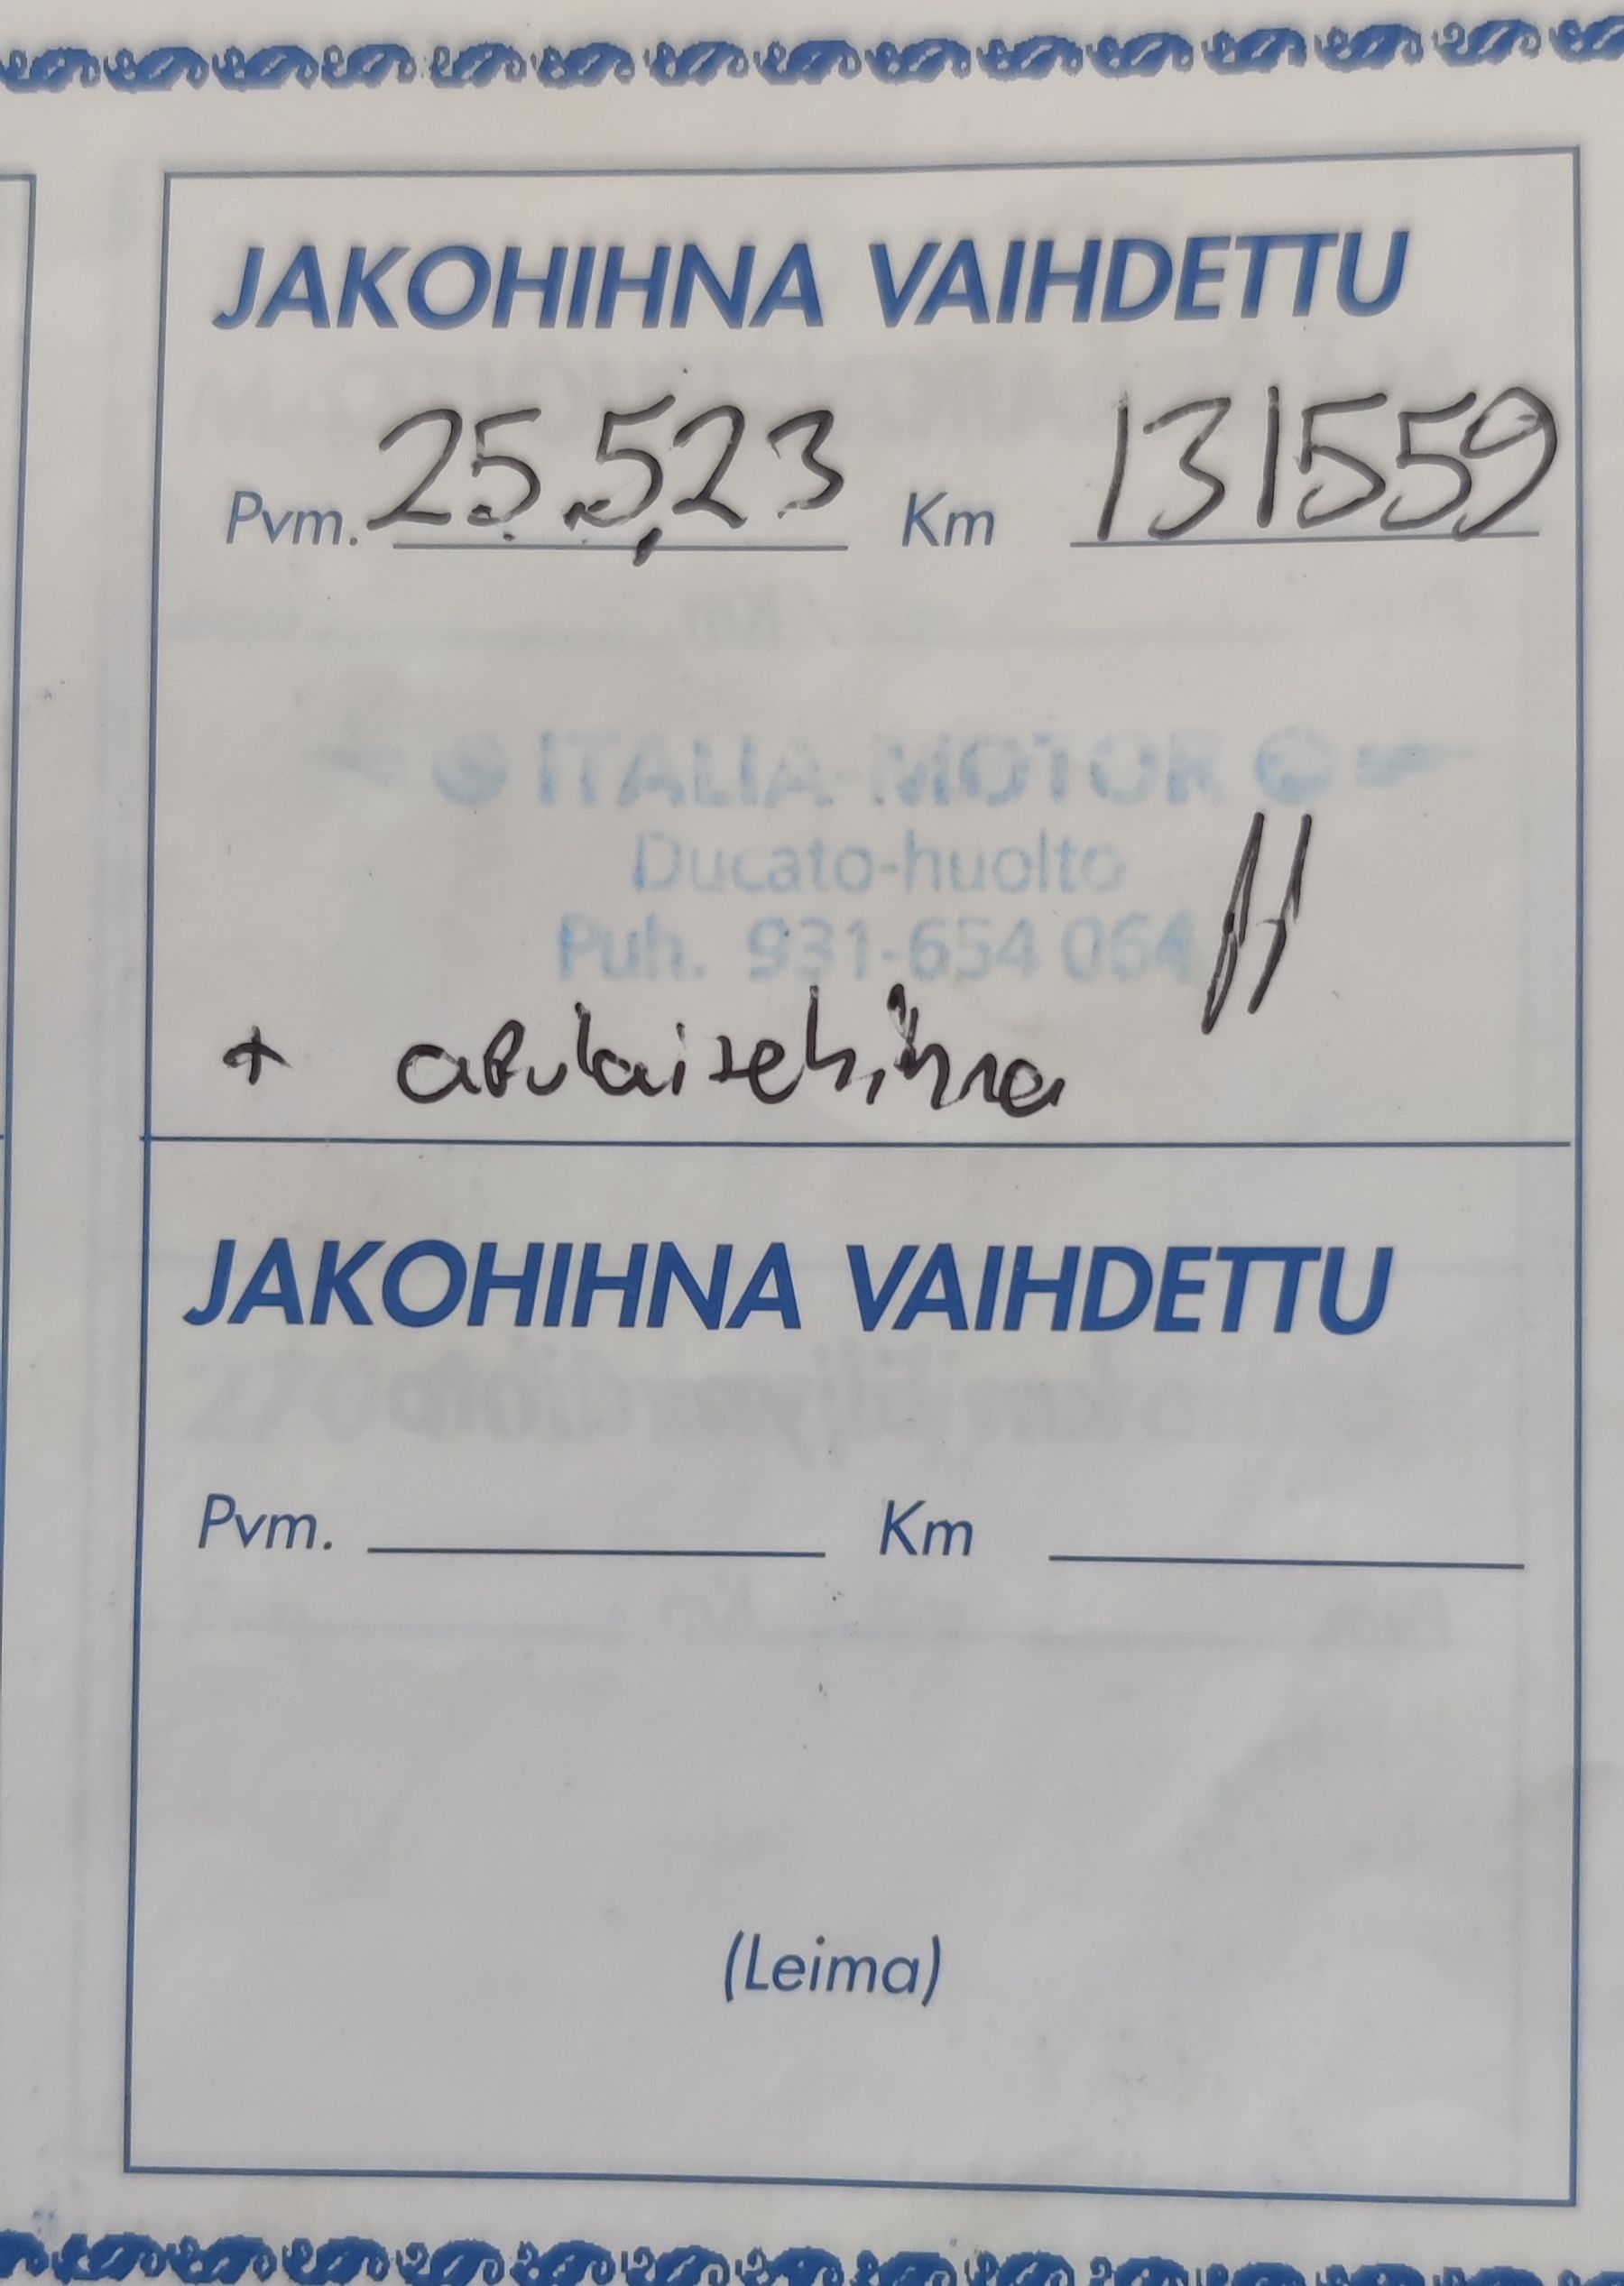 JAKOHIHNA VAIHDETTU
Pvm. 25.5,23 Km 131559
ITALIA-MOTOR
Ducato-huolto
Puh. 931-654 064
+ apulaitehihna
JAKOHIHNA VAIHDETTU
Pvm. Km
(Leima)